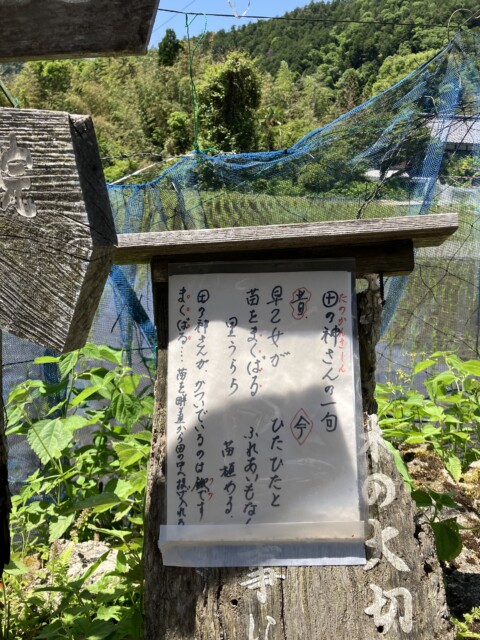 田の神さんの一句
昔
早乙女が
苗をまぐばる
里うらら
今
ひたひたと
ふれあいもなく
苗植わる.
田の神さんが かついでいるのは鍬です
まぐばる… 苗を畔道から田の中へ投げ入れる
の大切
事じ